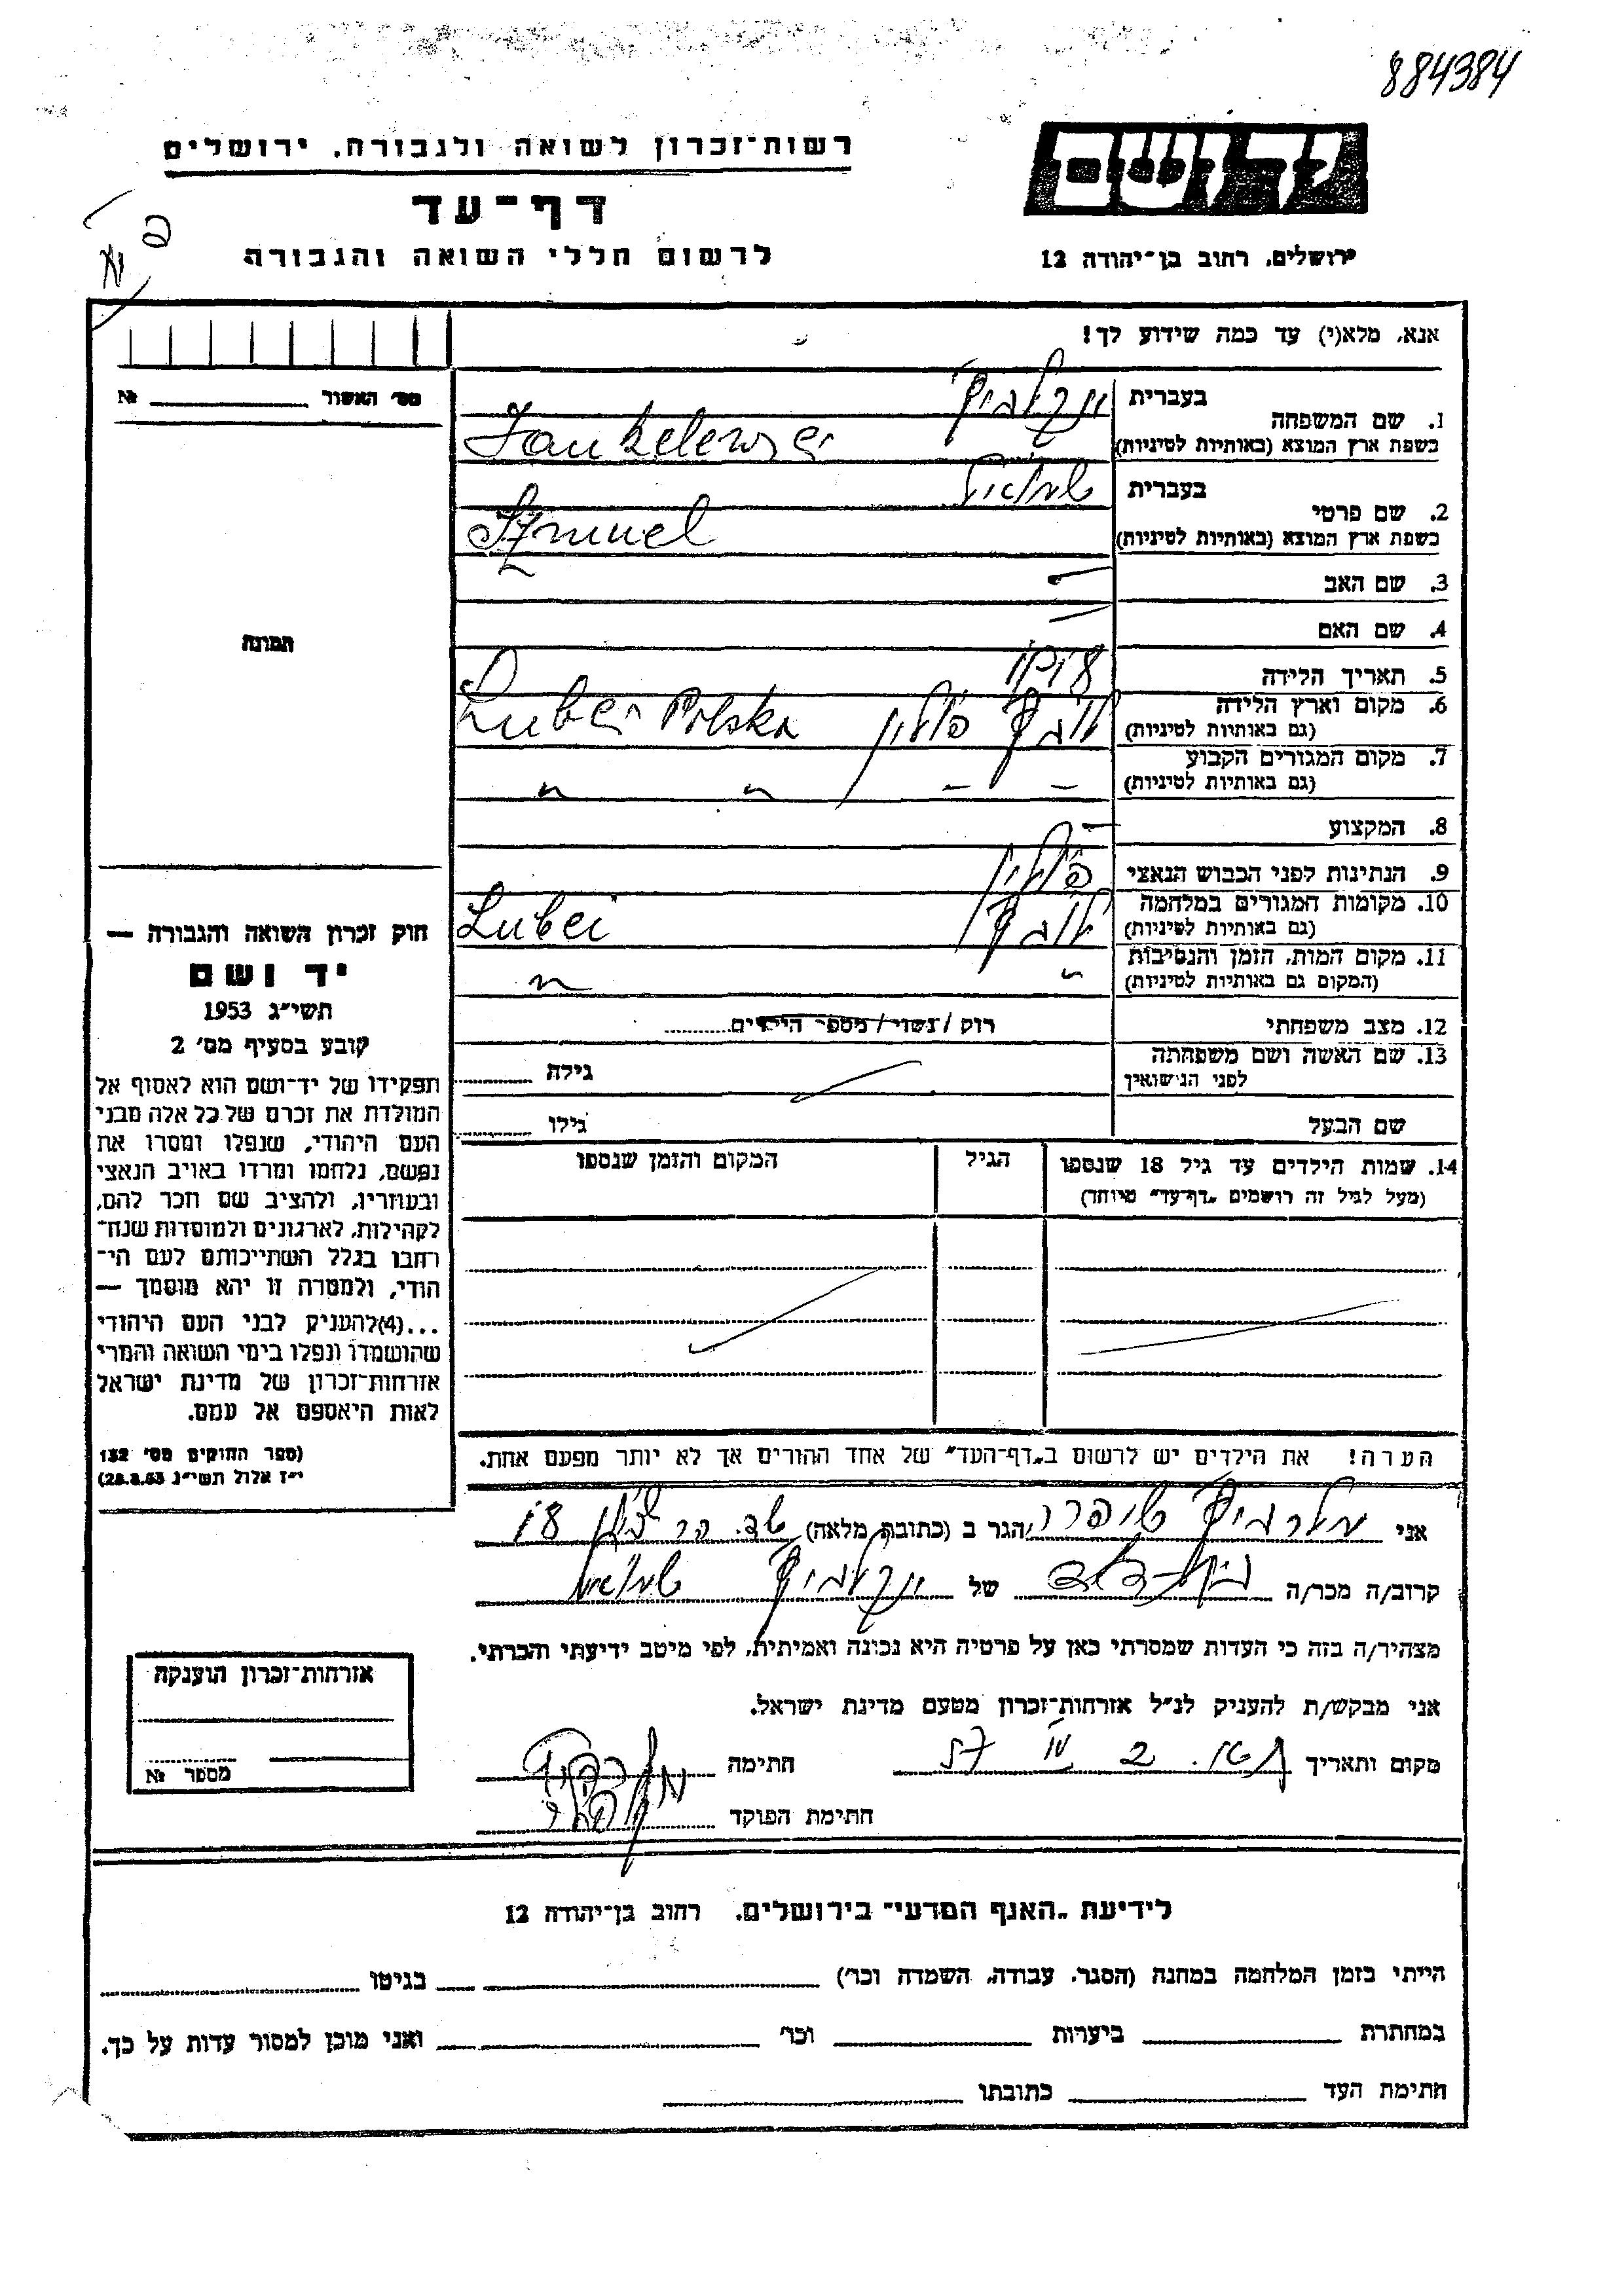 884384
רשות־זכרון לשואה ולגבורה, ירושלים
יד ושם
דף־עד
לרשום חללי השואה והגבורה
ירושלים, רחוב בן־יהודה 12
אנא, מלא(י) עד כמה שידוע לך!
מס׳ האשור № 
1. שם המשפחה
בעברית
ינקלביץ
בשפת ארץ המוצא (באותיות לטיניות)
2. שם פרטי
בעברית
שמואל
בשפת ארץ המוצא (באותיות לטיניות)
Szmuel
3. שם האב
4. שם האם
5. תאריך הלידה
6. מקום וארץ הלידה
(גם באותיות לטיניות)
פולין Polska
7. מקום המגורים הקבוע
(גם באותיות לטיניות)
8. המקצוע
9. הנתינות לפני הכבוש הנאצי
פולין
10. מקומות המגורים במלחמה
(גם באותיות לטיניות)
Lubcz
11. מקום המות, הזמן והנסיבות
(המקום גם באותיות לטיניות)
12. מצב משפחתי
רוק / נשוי / מספר הילדים
13. שם האשה ושם משפחתה
לפני הנישואין
גילה
שם הבעל
גילו
14. שמות הילדים עד גיל 18 שנספו
(מעל לגיל זה רושמים „דף־עד״ מיוחד)
הגיל
המקום והזמן שנספו
תמונה
חוק זכרון השואה והגבורה —
יד ושם
תשי״ג 1953
קובע בסעיף מס׳ 2
תפקידו של יד־ושם הוא לאסוף אל
המולדת את זכרם של כל אלה מבני
העם היהודי, שנפלו ומסרו את
נפשם, נלחמו ומרדו באויב הנאצי
ובעוזריו, ולהציב שם וזכר להם,
לקהילות, לארגונים ולמוסדות שנח־
רבו בגלל השתייכותם לעם הי־
הודי, ולמטרה זו יהא מוסמך —
...(4)להעניק לבני העם היהודי
שהושמדו ונפלו בימי השואה והמרי
אזרחות־זכרון של מדינת ישראל
לאות היאספם אל עמם.
(ספר החוקים מס׳ 132
י״ז אלול תשי״ג 28.8.53)
הערה! את הילדים יש לרשום ב„דף־העד״ של אחד ההורים אך לא יותר מפעם אחת.
אני
הגר ב (כתובת מלאה)
קרוב/ה מכר/ה
של ינקלביץ שמואל
מצהיר/ה בזה כי העדות שמסרתי כאן על פרטיה היא נכונה ואמיתית, לפי מיטב ידיעתי והכרתי.
אני מבקש/ת להעניק לנ״ל אזרחות־זכרון מטעם מדינת ישראל.
מקום ותאריך
חתימה
חתימת הפוקד
אזרחות־זכרון הוענקה
מספר №
לידיעת „האגף המדעי״ בירושלים, רחוב בן־יהודה 12
הייתי בזמן המלחמה במחנה (הסגר, עבודה, השמדה וכו׳) בגיטו
במחתרת ביערות וכו׳ ואני מוכן למסור עדות על כך.
חתימת העד כתובתו